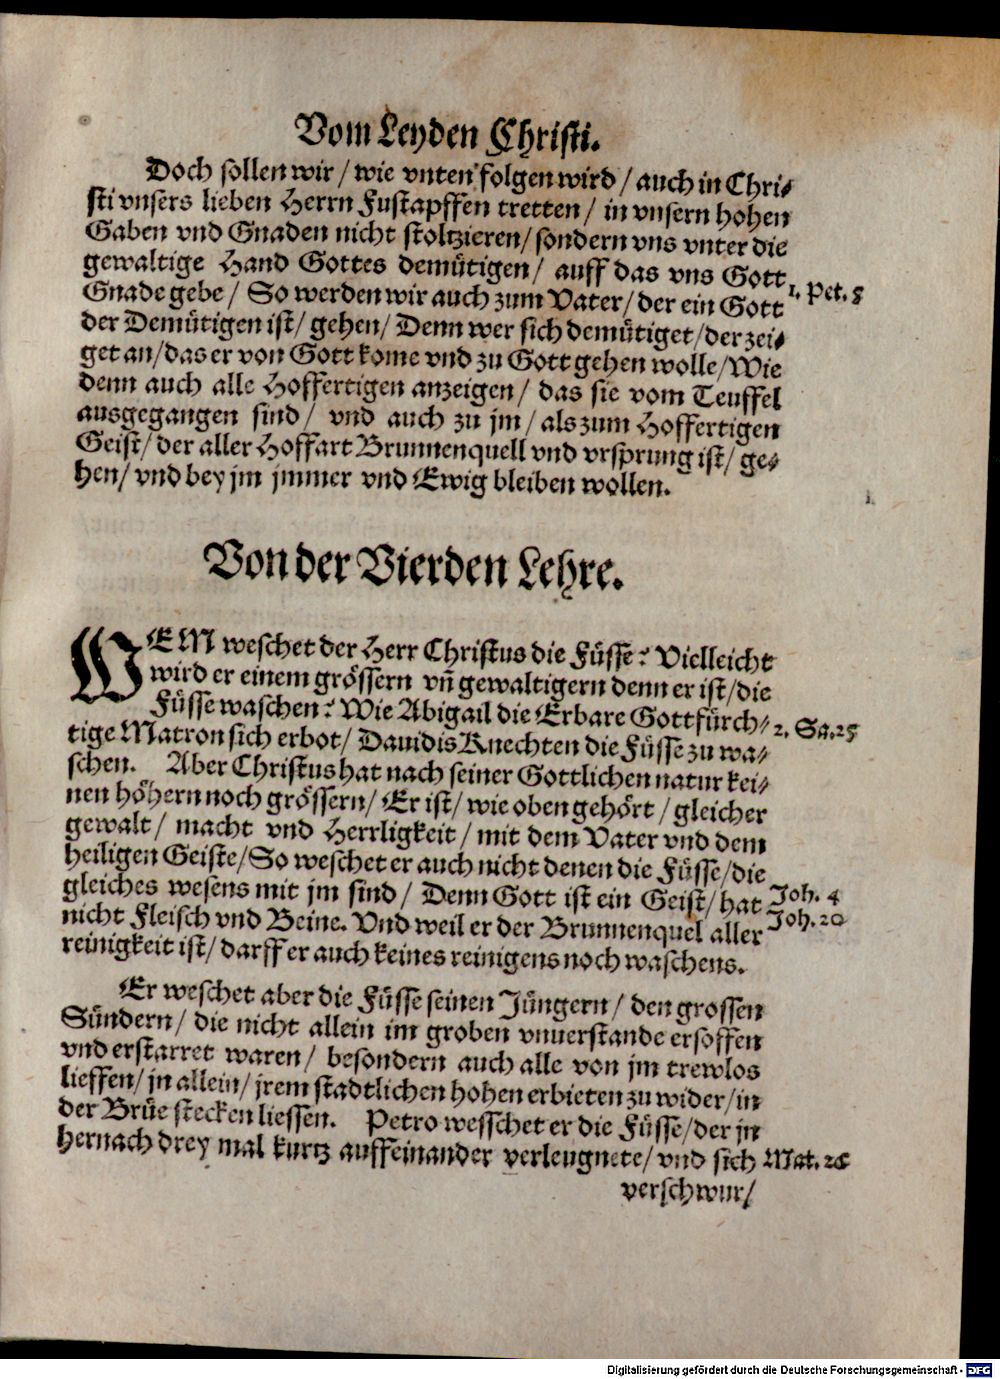 Vom Leyden Christi.
Doch sollen wir / wie vnten folgen wird / auch in Chri-
sti vnsers lieben Herrn Fustapffen tretten / in vnsern hohen
Gaben vnd Gnaden nicht stoltzieren / sondern vns vnter die
gewaltige Hand Gottes demütigen / auff das vns Gott
Gnade gebe / So werden wir auch zum Vater / der ein Gott
1. Pet. 5
der Demütigen ist / gehen / Denn wer sich demütiget / der zei-
get an / das er von Gott kome vnd zu Gott gehen wolle / Wie
denn auch alle Hoffertigen anzeigen / das sie vom Teuffel
ausgegangen sind / vnd auch zu jm / als zum Hoffertigen
Geist / der aller Hoffart Brunnenquell vnd vrsprung ist / ge-
hen / vnd bey jm jmmer vnd Ewig bleiben wollen.
Von der Vierden Lehre.
WEM weschet der Herr Christus die Füsse? Vielleicht
wird er einem grössern vñ gewaltigern denn er ist / die
Füsse waschen? Wie Abigail die Erbare Gottfürch-
2. Sa. 25
tige Matron sich erbot / Dauidis Knechten die Füsse zu wa-
schen. Aber Christus hat nach seiner Gottlichen natur kei-
nen höhern noch grössern / Er ist / wie oben gehört / gleicher
gewalt / macht vnd Herrligkeit / mit dem Vater vnd dem
heiligen Geiste / So weschet er auch nicht denen die Füsse / die
gleiches wesens mit jm sind / Denn Gott ist ein Geist / hat
Joh. 4
nicht Fleisch vnd Beine. Vnd weil er der Brunnenquel aller
Joh. 20
reinigkeit ist / darff er auch keines reinigens noch waschens.
Er weschet aber die Füsse seinen Jüngern / den grossen
Sündern / die nicht allein im groben vnuerstande ersoffen
vnd erstarret waren / besondern auch alle von jm trewlos
lieffen / jn allein / jrem stadtlichen hohen erbieten zu wider / in
der Brüe stecken liessen. Petro wesschet er die Füsse / der jn
hernach drey mal kurtz auffeinander verleugnete / vnd sich
Mat. 26
verschwur /
Digitalisierung gefördert durch die Deutsche Forschungsgemeinschaft - DFG